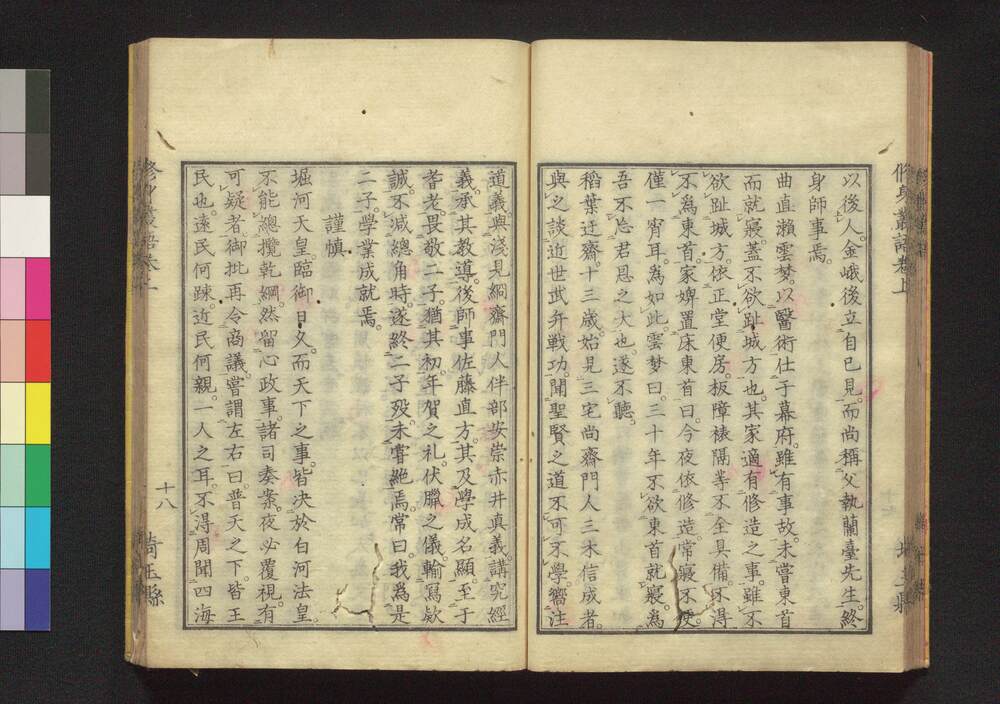 以後人。金峨後立自已見。而尚稱父執蘭臺先生。終
身師事焉。
曲直瀬雲夢。以醫術仕于幕府。雖有事故。未嘗東首
而就寢。蓋不欲趾城方也。其家適有修造之事。雖不
欲趾城方。依正堂便房。板障裱隔等不全具備。不得
不爲東首。家婢置床東首曰。今夜依修造常寢不便。
僅一宵耳。爲如此。雲夢曰。三十年不欲東首就寢。爲
吾不忘君恩之大也。遂不聽。
稻葉迂齋十三歳。始見三宅尚齋門人三木信成者。
與之談近世武弁戰功。聞聖賢之道不可不學。嚮注
道義。與淺見絅齋門人伴部安崇赤井眞義。講究經
義。承其教導。後師事佐藤直方。其及學成名顯。至于
耆老。畏敬二子。猶其初。年賀之礼。伏臘之儀。輸寫欵
誠。不減總角時。遂終二子歿。未嘗絶焉。常曰。我爲是
二子。學業成就焉。
謹慎
堀河天皇。臨御日久。而天下之事。皆决於白河法皇。
不能總攬乾綱。然留心政事。諸司奏案。夜必覆視。有
可疑者。御批再令商議。嘗謂左右曰。普天之下。皆王
民也。遠民何踈。近民何親。一人之耳。不得周聞四海
修身叢語卷上
十八
埼玉縣